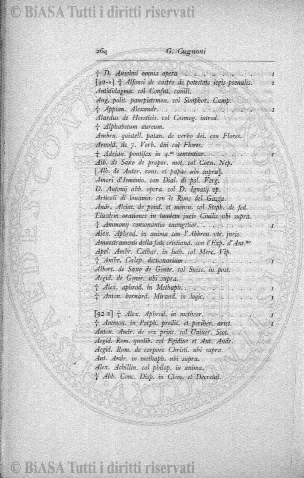 © BiASA Tutti i diritti riservati
264 G. Cugnoni
† D. Anselmi omnia opera . . . . . . . . . . 1
[90-1] † Alfonsi de castro de potestate legis poenalis. 1
Antididagma. col Consul. conill.
Ang. polit. panepistemon. col Simphor. Camp.
† Appian. Alexandr. . . . . . . . . . . 1
Alardus de Haereticis. col Cosmog. introd.
† Alphabetum aureum.
Ambra. quistell. patan. de verbo dei. con Flores.
Arnold. de 7. Verb. dni col Flores.
† Adrian. pontifex in 4.um sententiar. . . . . 1
Alb. de Saxo de propor. mot. col Caen. Nep.
[Alb. de Autor. cons. et papae ubi supra].
Ameri d'Incenio. con Dial. di pol. Virg.
D. Antonij abb. opera. col D. Ignatij ep.
Articoli di lovanio. con le Rime del Gazza.
Andr. Alciat. de pond. et mensu. col Steph. de fed.
Eiusdem orationes in laudem juris Civilis ubi supra.
† Ammonij consonantia evangelior. . . . . 1
Alex. Aphrod. in anima con l'Abbreu. utr. juris.
Amaestramenti della fede cristiana. con l'Esp. d'Ant.no
Apol. Ambr. Cathar. in luth. col Merc. Vip.
† Ambr. Calep. dictionarium . . . . . . 1
Albert. de Saxo de Gener. col Suiss. in prot.
Aegid. de Gener. ubi supra.
† Alex. aphrod. in Methaph. . . . . . . 1
† Anton. bernard. Mirand. in logic. . . . . 1
[92-1] † Alex. Aphrod. in metheor. . . . . . 1
† Ammon. in Porph. predic. et periher. arist. 1
Anton. Andr. de tre princ. col Univer. Scot.
Aegid. Rom. quolib. col Egidius et Ant. Andr.
Aegid. Rom. de corpore Christi. ubi supra.
Ant. Andr. in methaph. ubi supra.
Alex. Achillin. col philop. in anima.
† Abb. Conc. Disp. in Clem. et Decretal.
© BiASA Tutti i diritti riservati